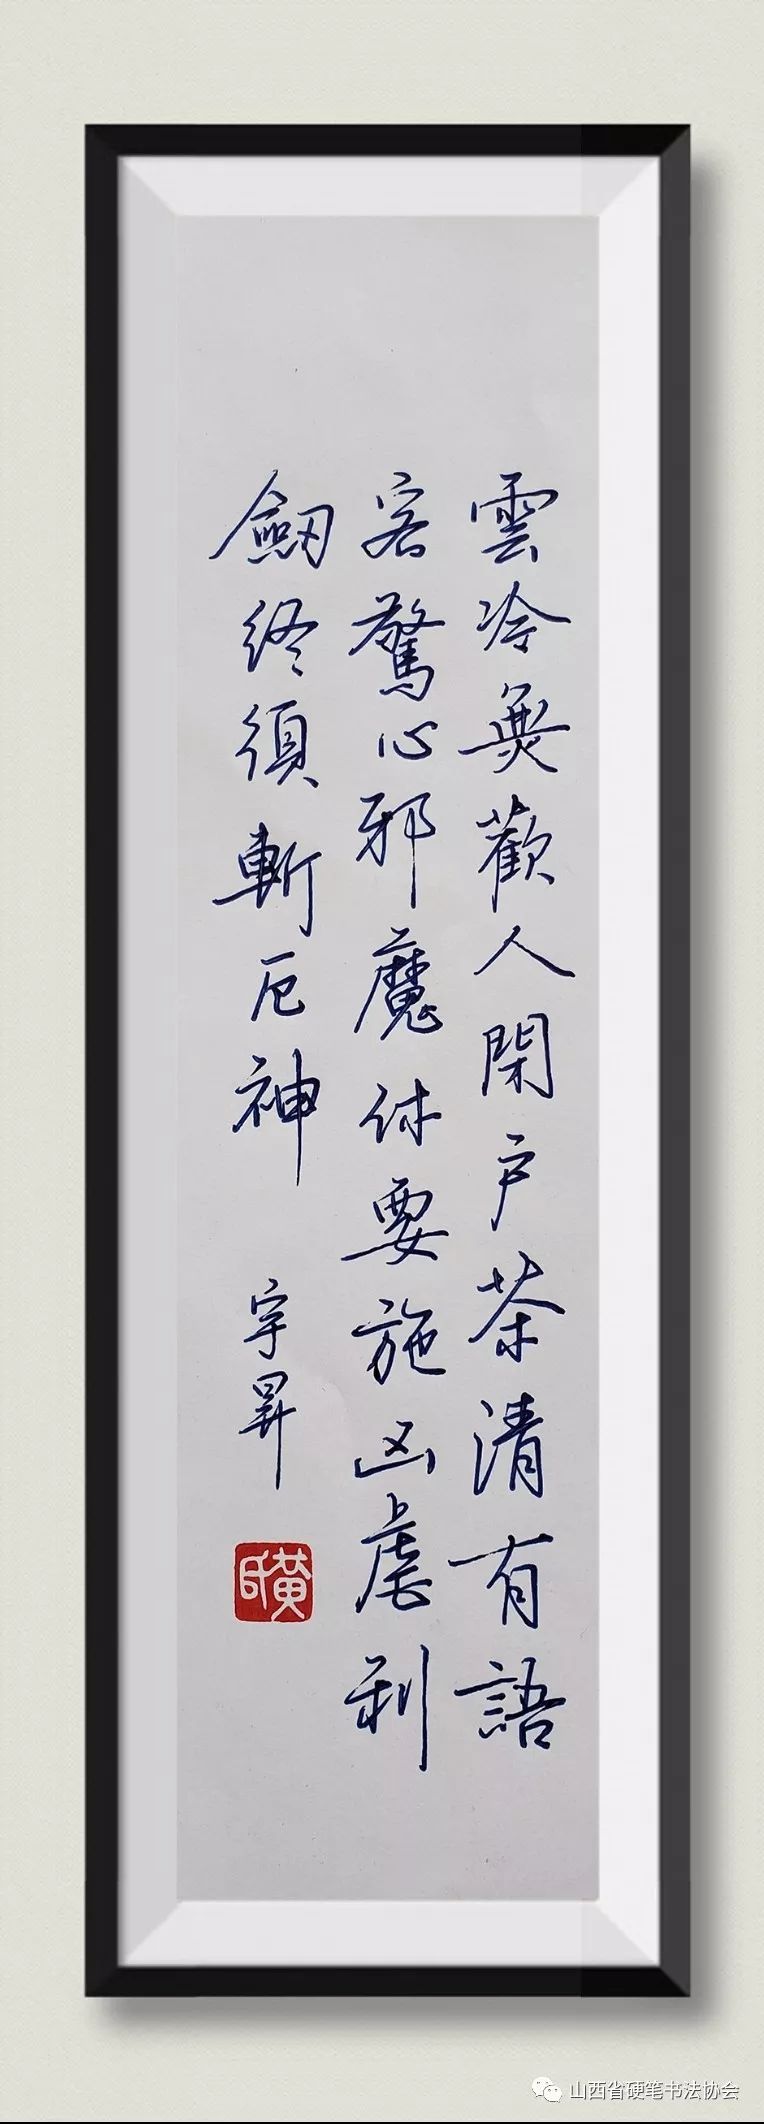 雲冷無歡人閉户茶清有語
客驚心邪魔休要施凶虐利
劒終須斬厄神
宇昇
黄氏
山西省硬笔书法协会